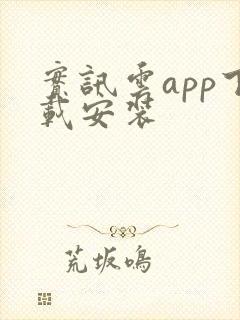 實訊雲app下
載安裝
荒坂鳴